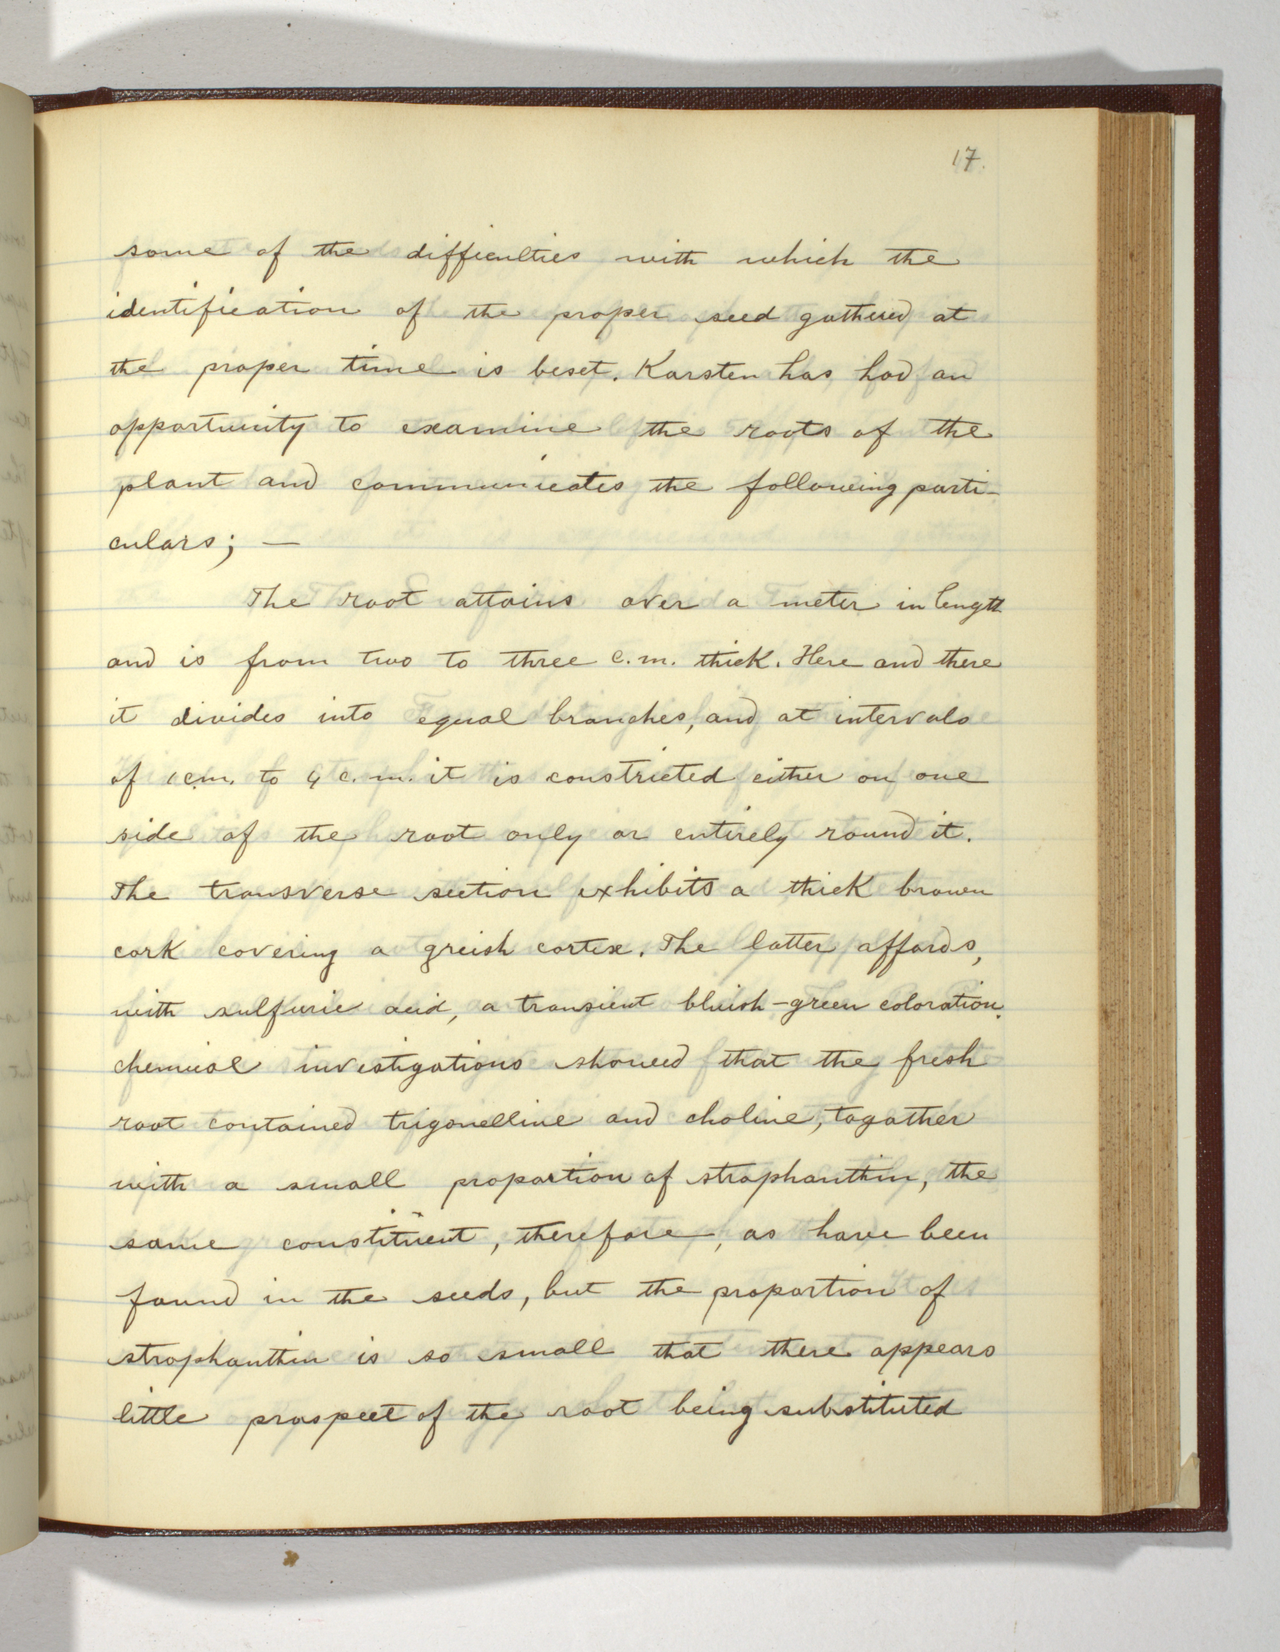 17.
some of the difficulties with which the
identification of the proper seed gathered at
the proper time is beset. Karsten has had an
opportunity to examine the roots of the
plant and communicates the following parti-
culars; —
The root attains over a meter in length
and is from two to three c.m. thick. Here and there
it divides into equal branches, and at intervals
of 1 cm. to 4 c.m. it is constricted either on one
side of the root only or entirely round it.
The transverse section exhibits a thick brown
cork covering a greish cortex. The latter affords,
with sulfuric acid, a transient bluish-green coloration.
chemical investigations showed that the fresh
root contained trigonelline and choline, togather
with a small proportion of strophanthin, the
same constituent, therefore, as have been
found in the seeds, but the proportion of
strophanthin is so small that there appears
little prospect of the root being substituted